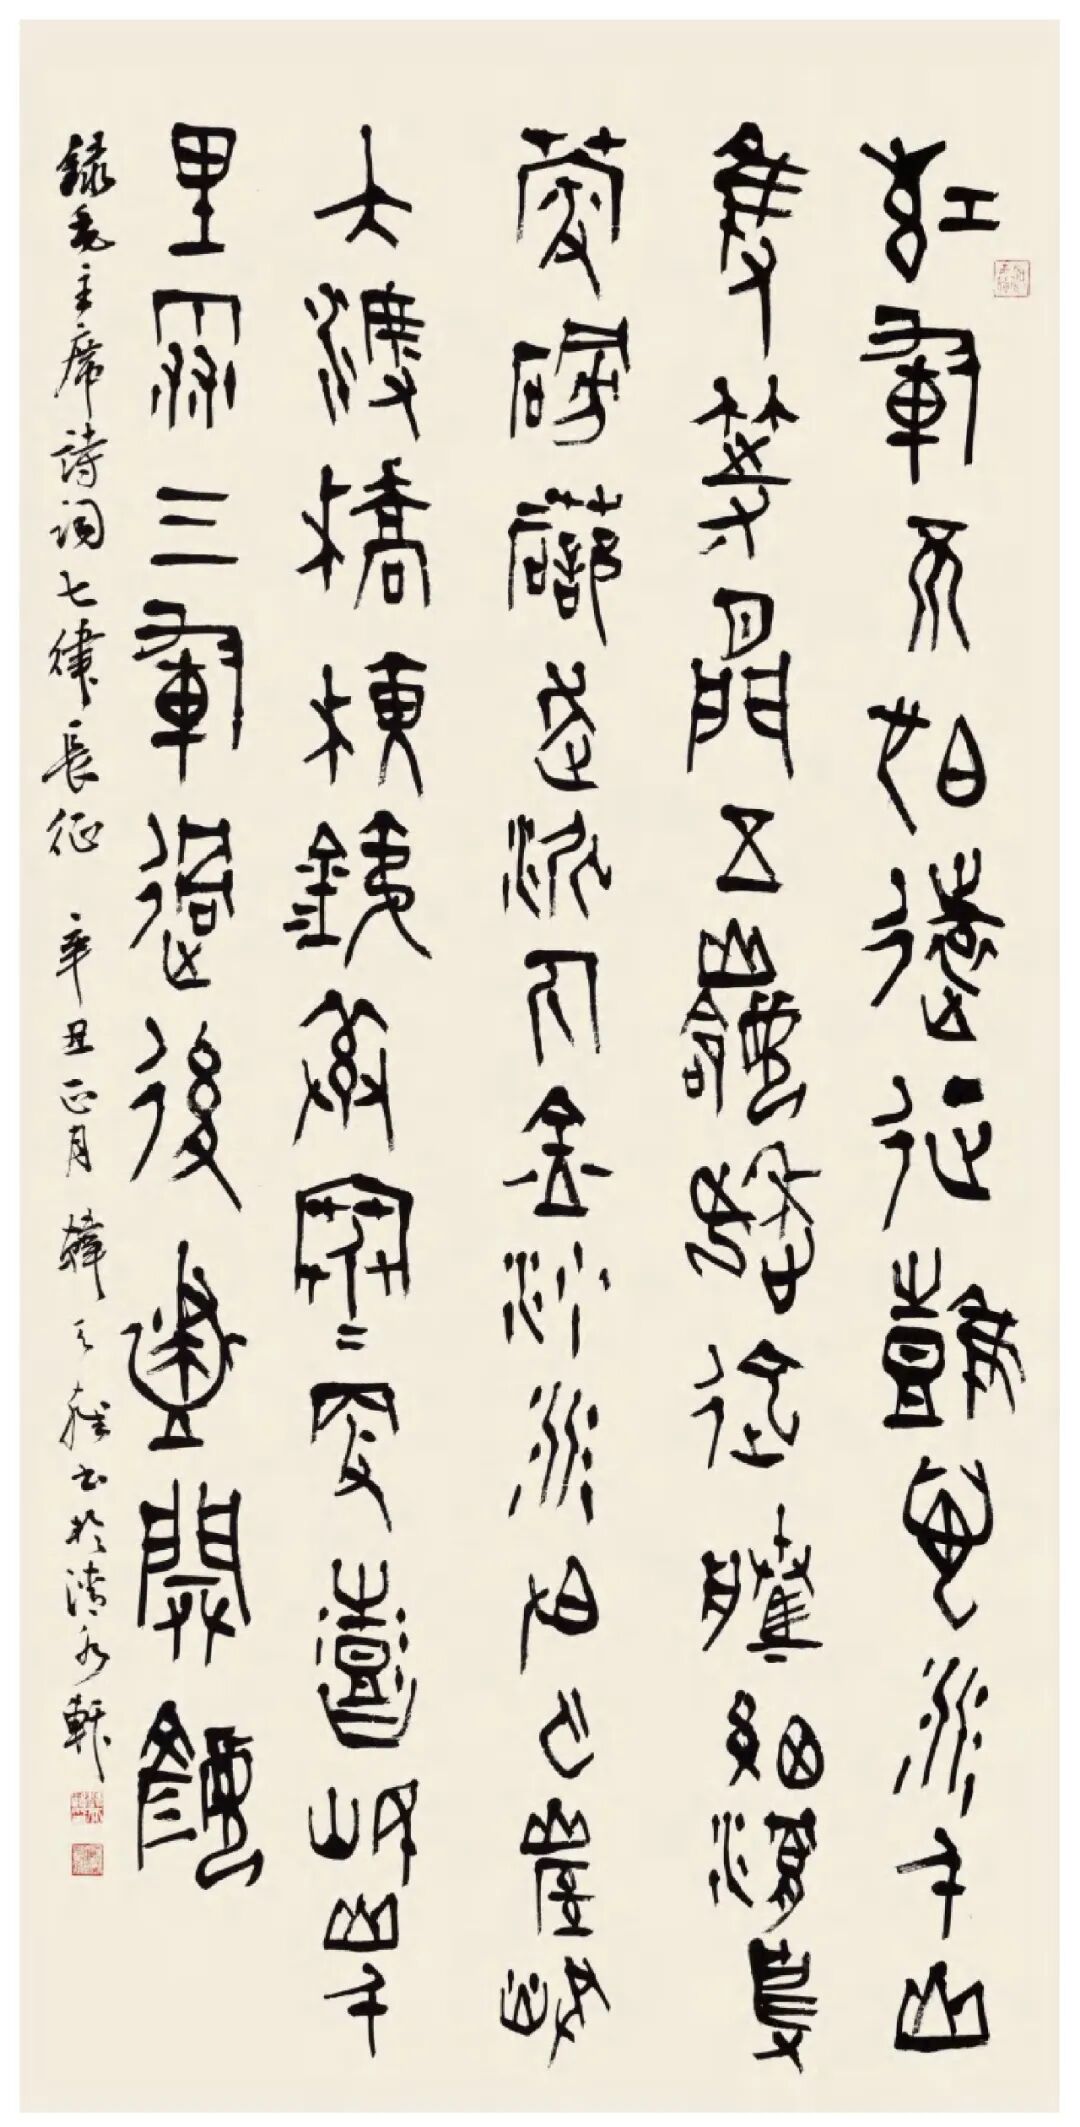 紅軍不怕遠征難萬水千山
隻等閒五嶺逶迤騰細浪烏
蒙磅礴走泥丸金沙水拍雲崖暖
大渡橋橫鐵索寒更喜岷山千
里雪三軍過後盡開顏
錄毛主席詩詞七律長征 辛丑正月 韓天雍書於清軒